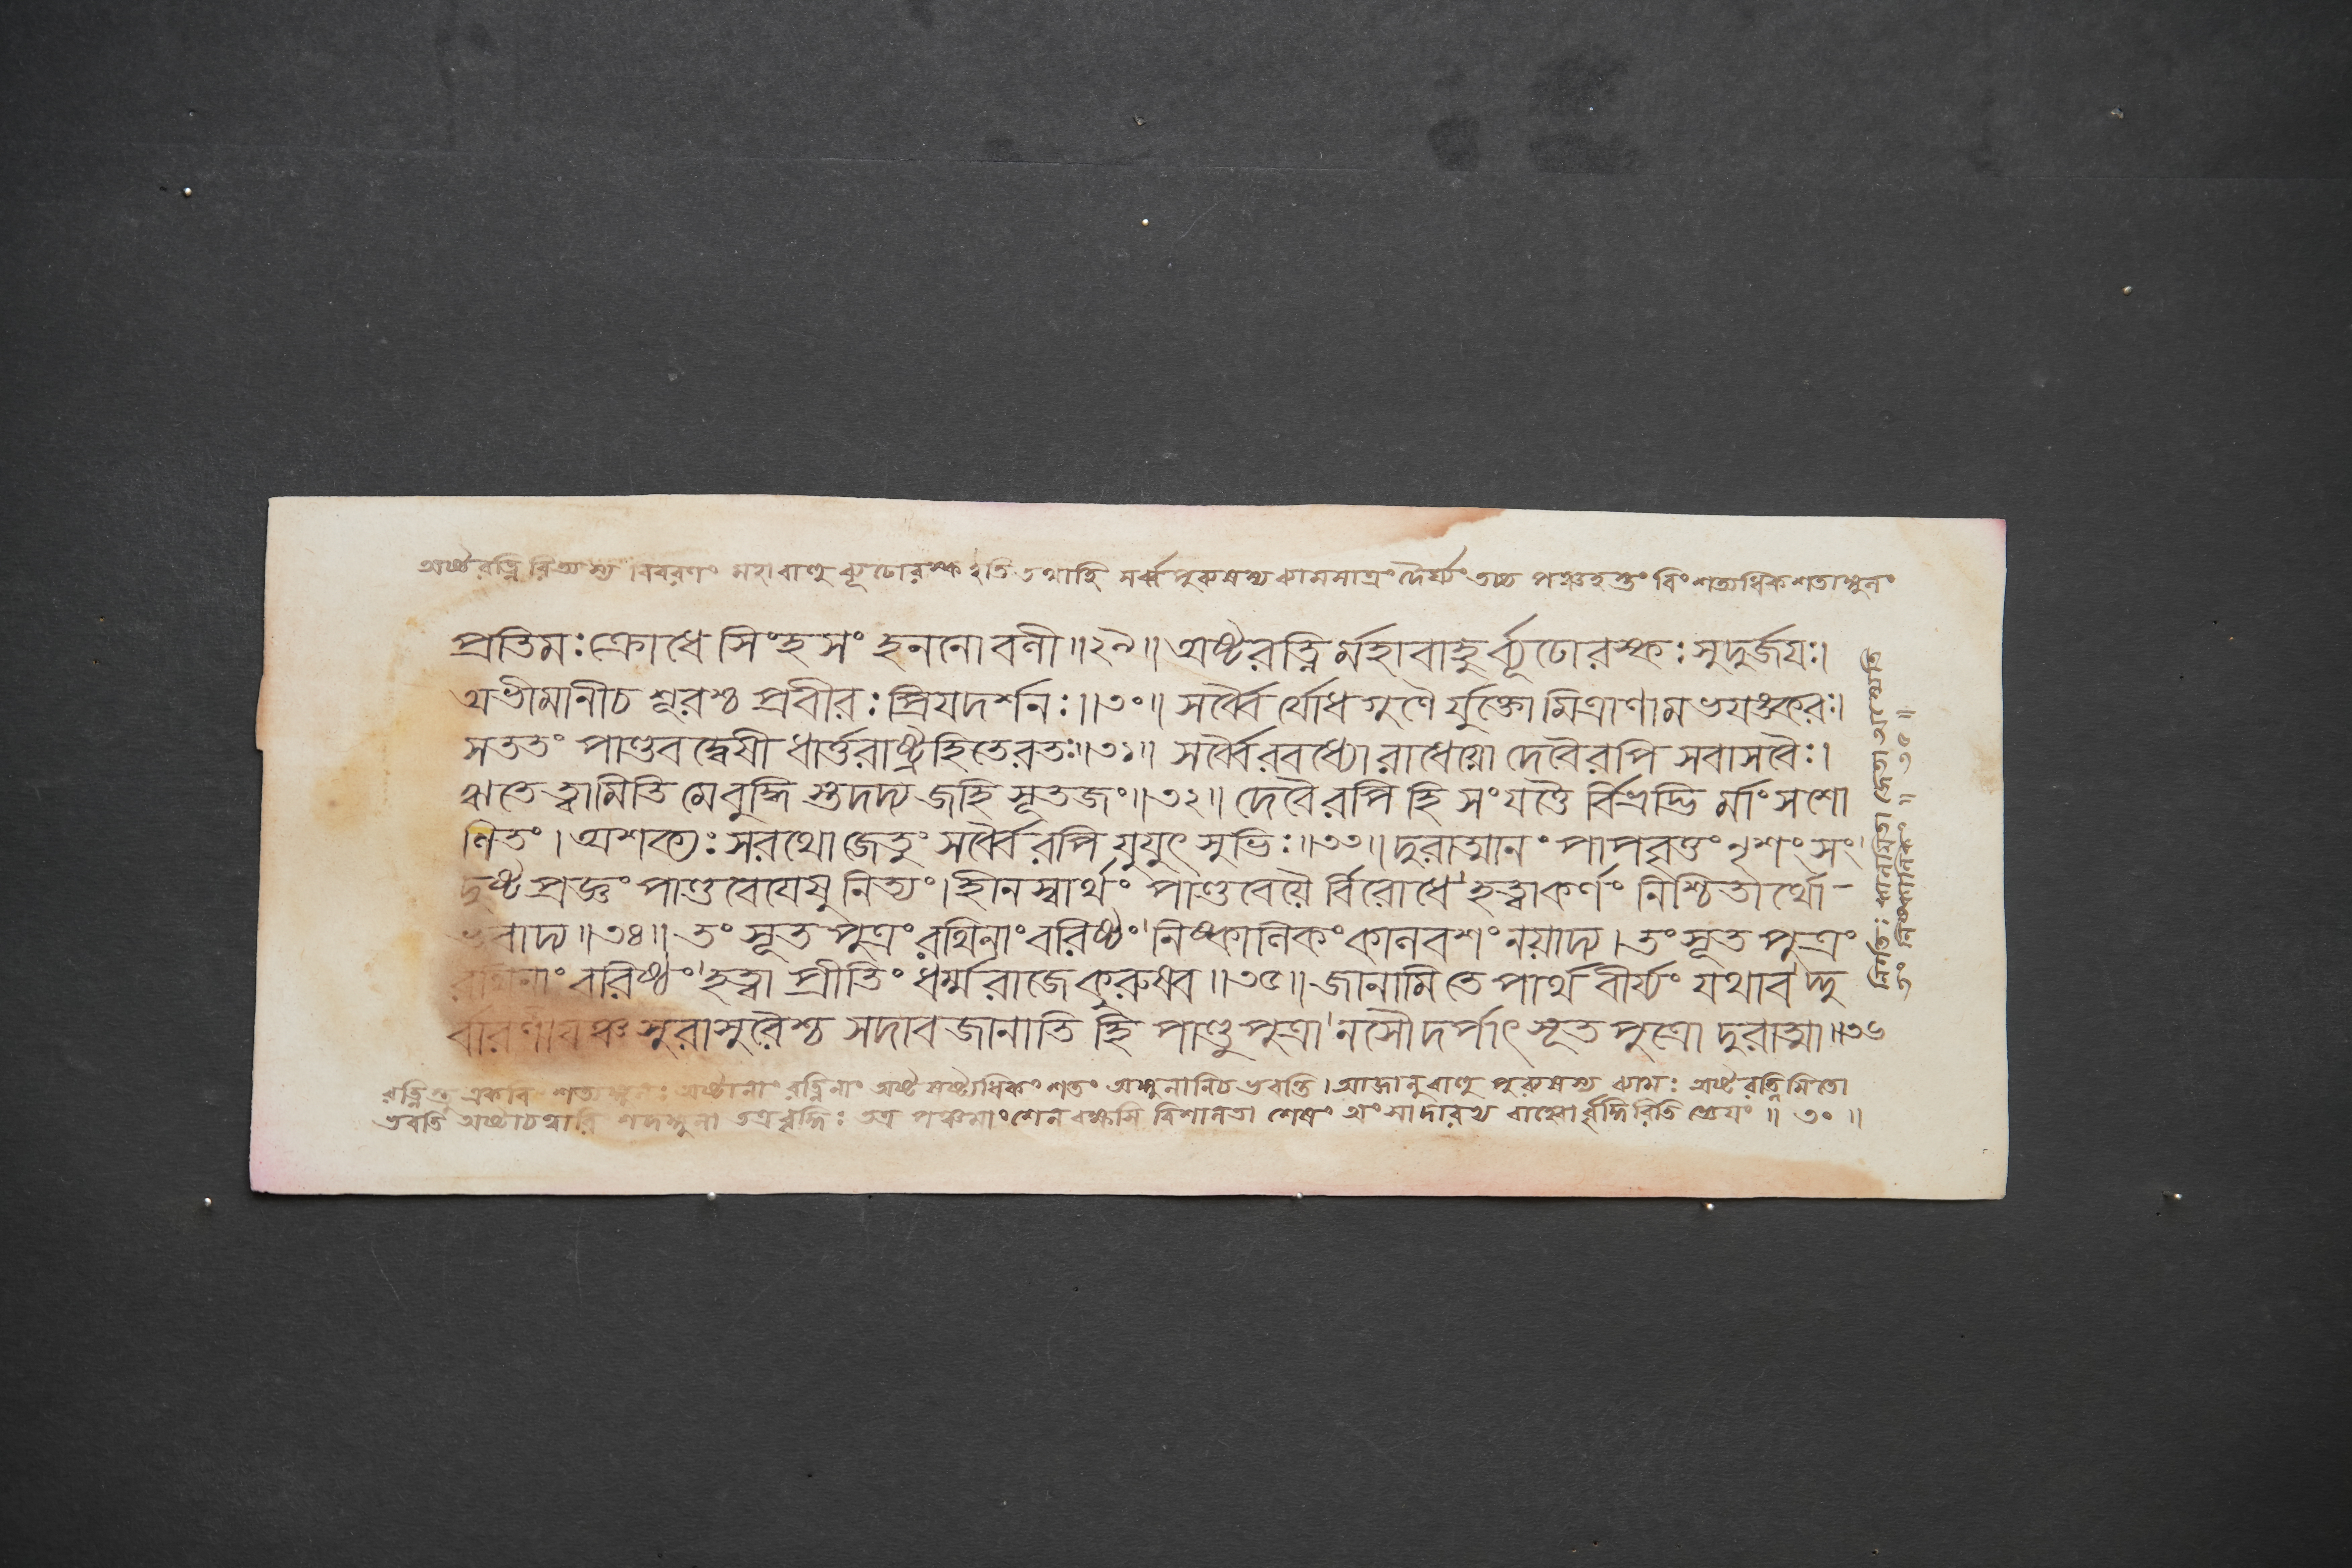 অষ্টরত্নিরিত্যস্য বিবরণং মহাবাহু ব্যূঢোরস্ক ইতি তথাহি সর্ব্বপুরুষস্য ব্যামমাত্রং দৈর্ঘ্যং তচ্চ পঞ্চহস্তং বিংশত্যধিকশতাঙ্গুলং
প্রতিমঃ ক্রোধে সিংহসংহননো বলী॥২৯॥ অষ্টরত্নির্মহাবাহুর্ব্যূঢোরস্কঃ সুদুর্জয়ঃ।
অভীমানীচ শূরশ্চ প্রবীরঃ প্রিয়দর্শনঃ॥৩০॥ সর্ব্বৈর্যোধগুণৈর্যুক্তো মিত্রাণামভয়ঙ্করঃ।
সততং পাণ্ডবদ্বেষী ধার্ত্তরাষ্ট্রহিতেরতঃ॥৩১॥ সর্ব্বৈরবধ্যো রাধেয়ো দেবৈরপি সবাসবৈঃ।
ঋতে ত্বামিতি মে বুদ্ধিস্তদদ্য জহি সূতজং॥৩২॥ দেবৈরপি হি সংযত্তৈর্বিভ্রদ্ভির্মাংসশো
ণিতং। অশক্যঃ সরথো জেতুং সর্ব্বৈরপি যুযুৎসুভিঃ॥৩৩॥ দুরাত্মানং পাপবৃত্তং নৃশংসং
দুষ্টপ্রজ্ঞং পাণ্ডবেয়েষু নিত্যং। হীনস্বার্থং পাণ্ডবেয়ৈর্বিরোধে হত্বা কর্ণং নিশ্চিতার্থো-
ভবাদ্য॥৩৪॥ তং সূতপুত্রং রথিনাং বরিষ্ঠং নিষ্কালিকং কালবশং নয়াদ্য। তং সূতপুত্রং
রথিনাং বরিষ্ঠং হত্বা প্রীতিং ধর্ম্মরাজে কুরুষ্ব॥৩৫॥ জানামি তে পার্থ বীর্য্যং যথাবদ্দু
র্বারণীয়ঞ্চ সুরাসুরৈশ্চ সদাবজানাতি হি পাণ্ডুপুত্রানসৌ দর্পাৎ সূতপুত্রো দুরাত্মা॥৩৬
রত্নিস্তু একবিংশত্যঙ্গুলঃ অষ্টানাং রত্নিনাং অষ্টষষ্ট্যধিকং শতং অঙ্গুলানিচ ভবন্তি। আজানুবাহু পুরুষস্য ব্যামঃ অষ্টরত্নিমিতো
ভবতি অষ্টাচত্বারিংশদঙ্গুলা তত্র বৃদ্ধিঃ তত্র পঞ্চমাংশেন বক্ষসি বিশালতা শেষং অংসাদারভ্য বাহ্বোর্বৃদ্ধিরিতি জ্ঞেয়ং॥৩০॥
জেতা
॥৩৫॥